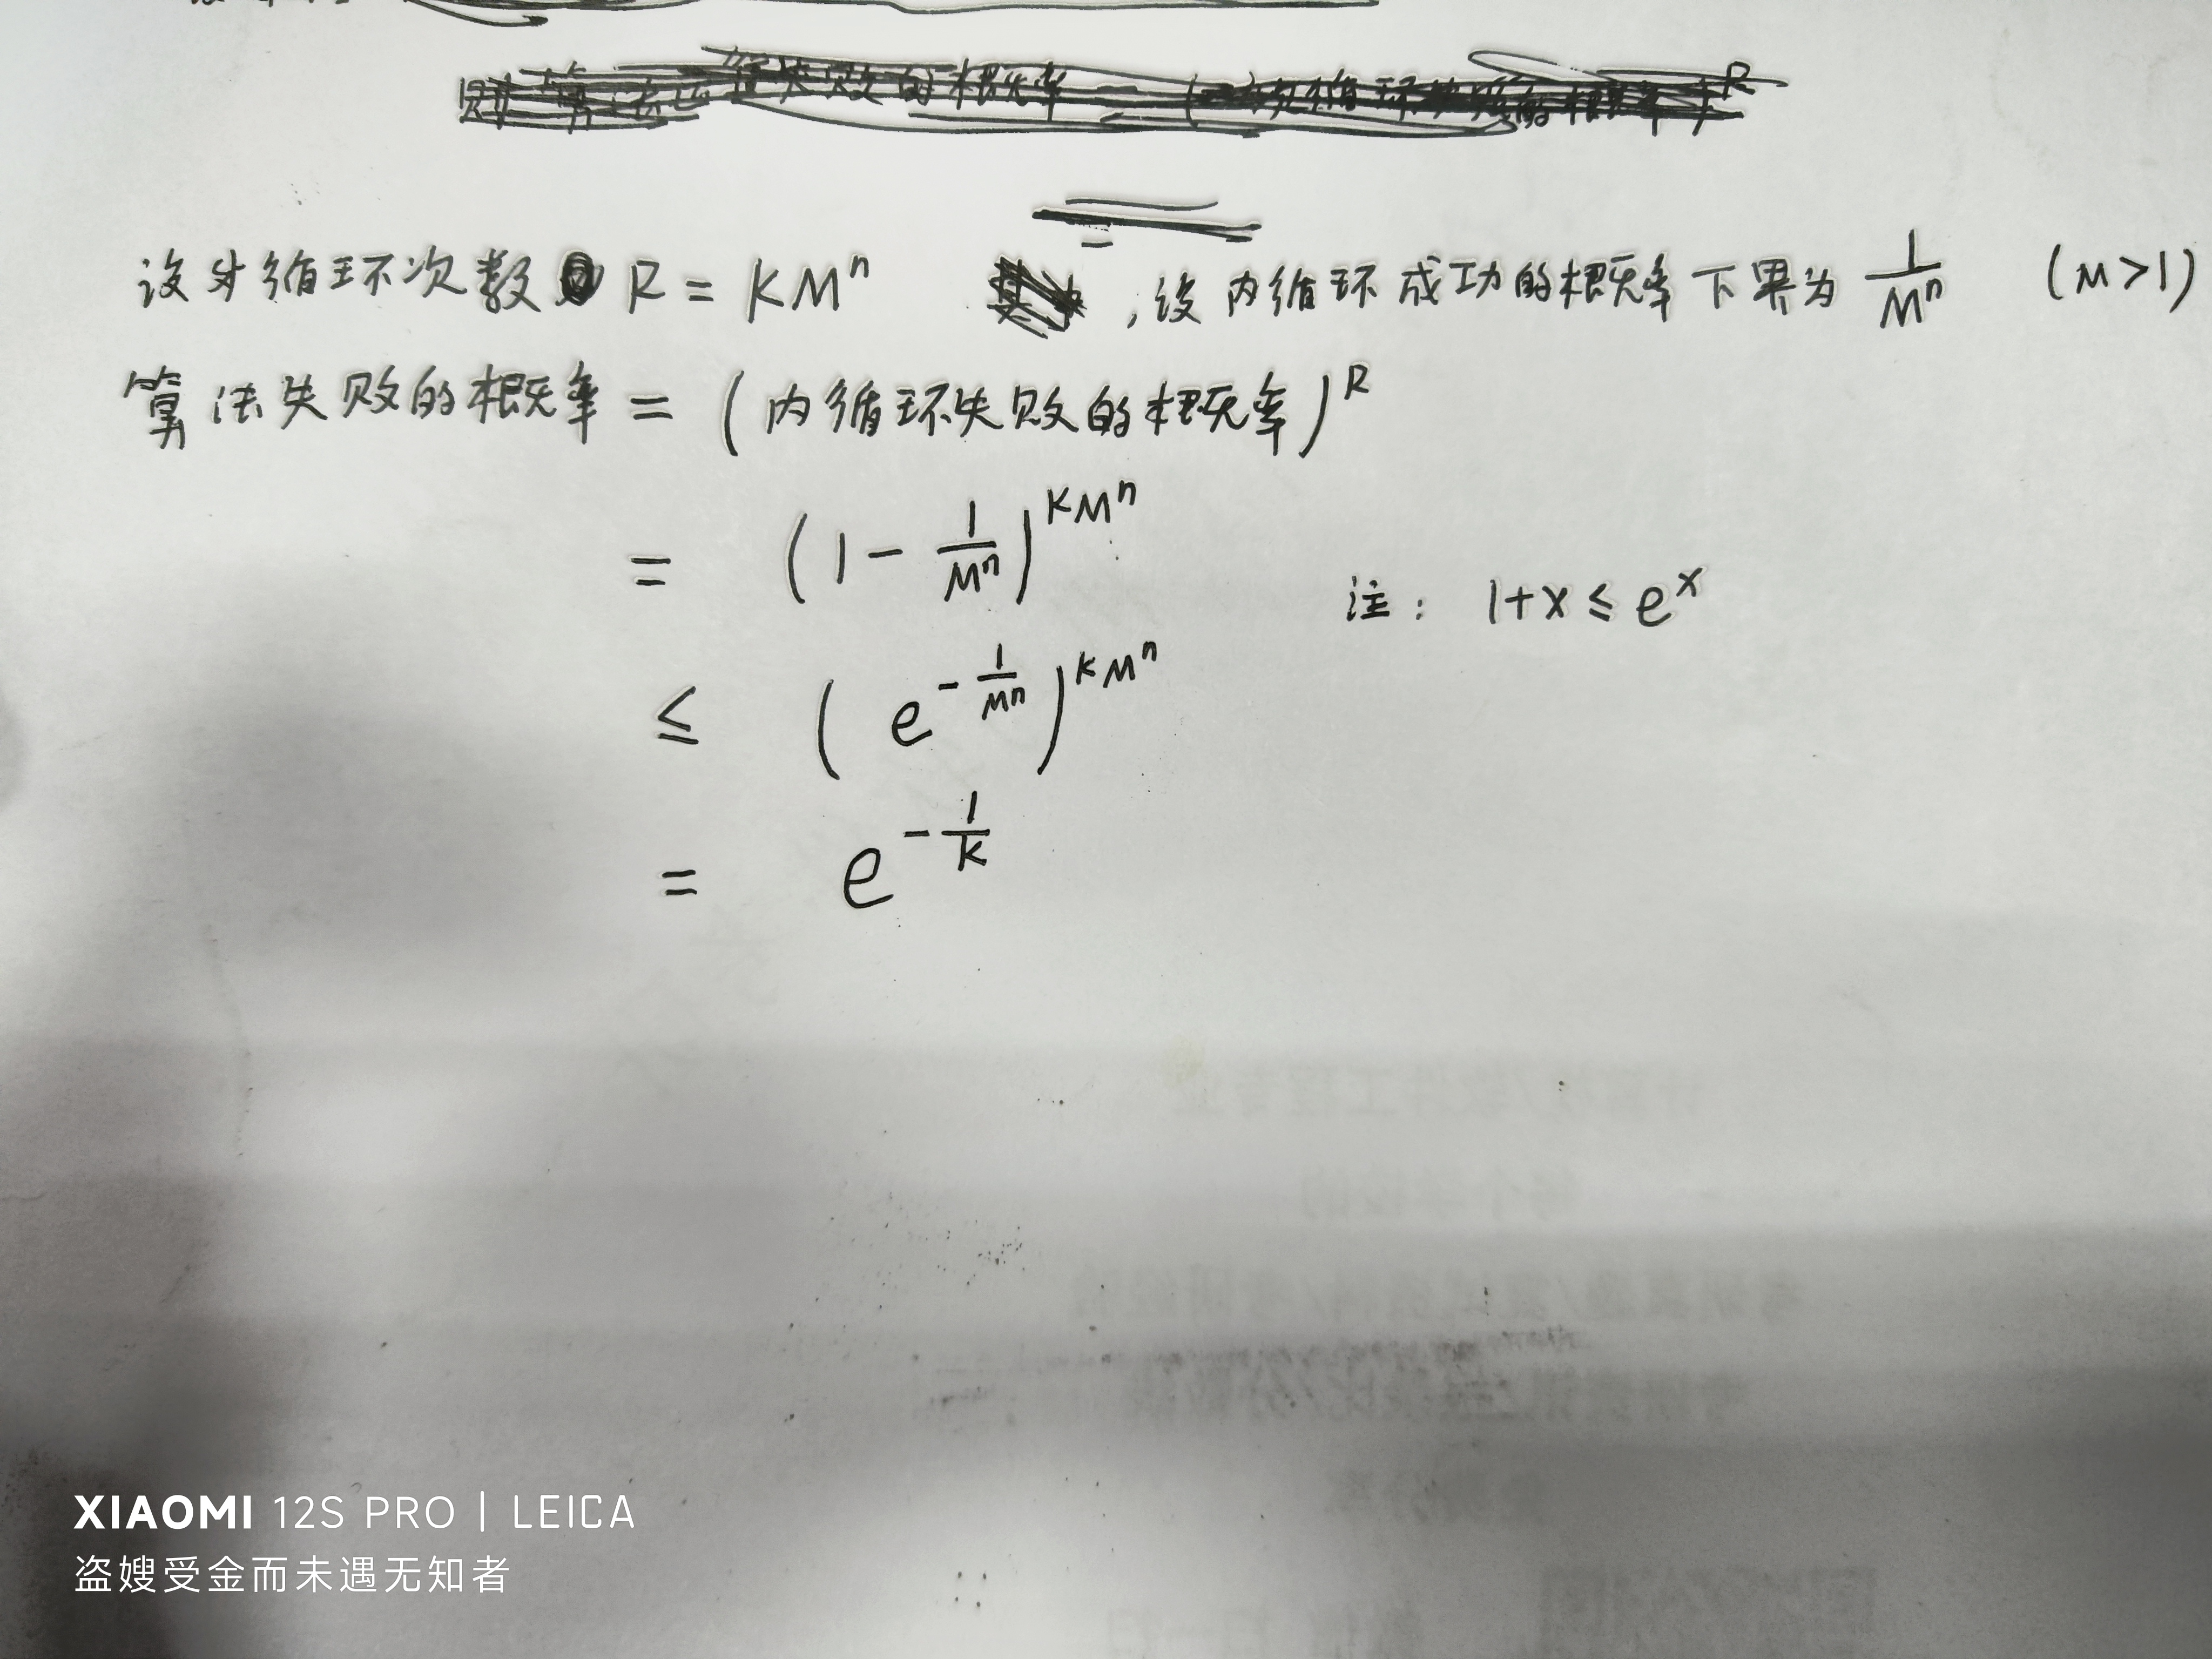 设外循环次数 R = KMⁿ ,设内循环成功的概率下界为 1/Mⁿ (M>1)
算法失败的概率 = (内循环失败的概率)ᴿ
= (1 - 1/Mⁿ)^(KMⁿ)
注: 1+x ≤ eˣ
≤ (e^(-1/Mⁿ))^(KMⁿ)
= e^(-1/K)
XIAOMI 12S PRO | LEICA
盗嫂受金而未遇无知者